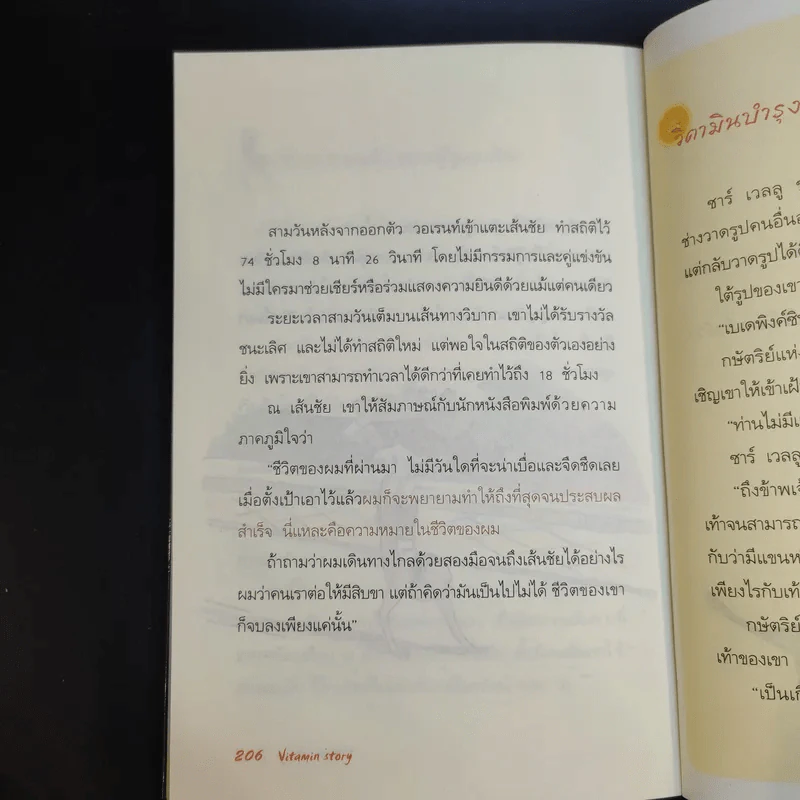 สามวันหลังจากออกตัว วอเรนท์เข้าแตะเส้นชัย ทำสถิติไว้
74 ชั่วโมง 8 นาที 26 วินาที โดยไม่มีกรรมการและคู่แข่งขัน
ไม่มีใครมาช่วยเชียร์หรือร่วมแสดงความยินดีด้วยแม้แต่คนเดียว
ระยะเวลาสามวันเต็มบนเส้นทางวิบาก เขาไม่ได้รับรางวัล
ชนะเลิศ และไม่ได้ทำสถิติใหม่ แต่พอใจในสถิติของตัวเองอย่าง
ยิ่ง เพราะเขาสามารถทำเวลาได้ดีกว่าที่เคยทำไว้ถึง 18 ชั่วโมง
ณ เส้นชัย เขาให้สัมภาษณ์กับนักหนังสือพิมพ์ด้วยความ
ภาคภูมิใจว่า
“ชีวิตของผมที่ผ่านมา ไม่มีวันใดที่จะน่าเบื่อและจืดชืดเลย
เมื่อตั้งเป้าเอาไว้แล้วผมก็จะพยายามทำให้ถึงที่สุดจนประสบผล
สำเร็จ นี่แหละคือความหมายในชีวิตของผม
ถ้าถามว่าผมเดินทางไกลด้วยสองมือจนถึงเส้นชัยได้อย่างไร
ผมว่าคนเราต่อให้มีสิบขา แต่ถ้าคิดว่ามันเป็นไปไม่ได้ ชีวิตของเขา
ก็จบลงเพียงแค่นั้น”
206 Vitamin story
วิตามินบำรุง
ซาร์ เวลลู
ช่างวาดรูปคนอื่น
แต่กลับวาดรูปได้
ใต้รูปของเขา
“เบเดพิงค์ซิน
กษัตริย์แห่ง
เชิญเขาให้เข้าเฝ้า
“ท่านไม่มี
ซาร์ เวลลู
“ถึงข้าพเจ้
เท้าจนสามารถ
กับว่ามีแขน
เพียงไรกับเท้
กษัตริย์
เท้าของเขา
“เป็นเกี